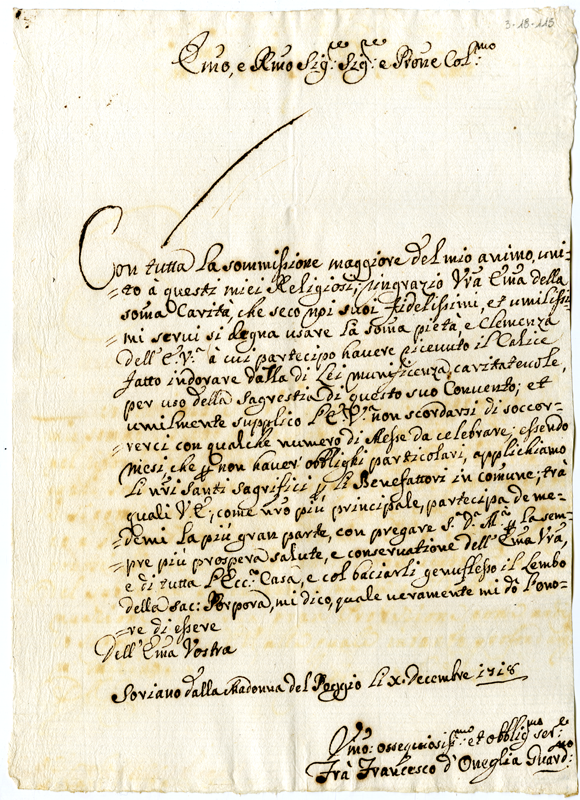 3-18-115
Emo, e Rmo Sig:re Sig:re e Prone Col:mo
Con tutta la sommissione maggiore del mio animo, uni-
=to à questi miei Religiosi, ringrazio Vra Ema della
soma Carità, che seco noi suoi fidelissimi, et umilissi-
mi servi si degna usare la soma pietà, e Clemenza
dell'E.V.a à cui partecipo havere ricevuto il Calice
fatto indorare dalla di Lei munificenza caritatevole,
per uso della Sagrestia di questo suo Convento; et
umilmente supplico l'E.V.a non scordarsi di soccor-
=rerci con qualche numero di Messe da celebrare; essendo
mesi, che p non haver' obblighi particolari, applichiamo
li nri santi sagrifici p li Benefattori in comune, trà
quali V.E., come nro più principale, partecipa de me-
=demi la più gran parte, con pregare S.a D.a M.a p la sem-
=pre più prospera salute, e conservatione dell'Ema Vra,
e di tutta l'Ecc.ma Casa, e col baciarli genuflesso il Lembo
della sac: Porpora, mi dico, quale veramente mi dò l'ono-
=re di essere
Dell'Ema Vostra
Soriano dalla Madonna del Poggio li x. Decembre 1718
Vmo: ossequiosiss:mo et obblig:mo ser:e
Frà Francesco d'Oneglia Guard:no